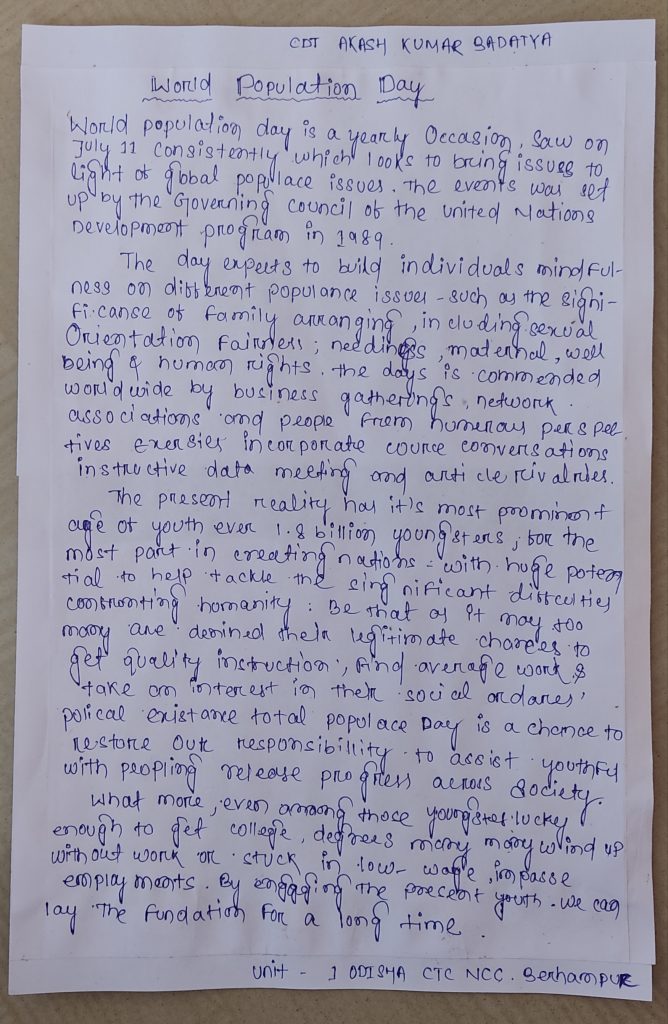 CDT AKASH KUMAR BADATYA
World Population Day
World population day is a yearly Occasion, Saw on
July 11 consistently which looks to bring issues to
light of global populace issues. The events was set
up by the Governing council of the united Nations
Development program in 1989.
The day expects to build individuals mindful-
ness on different populance issues - such as the signi-
ficanse of family arranging, including sexual
Orientation Fairness; needings, maternal, well
being & human rights. The days is commended
worldwide by business gatherings, network
associations and people from humerous perspec
tives exersies incorporate cource conversations
instructive data meeting and article rivalries.
The present reality has it's most prominent
age of youth ever 1.8 billion youngsters, for the
most part in creating nations - with huge poten
tial to help tackle the singnificant diffculties
confronting humanity. Be that as it may too
many are denined their legitimate chances to
get quality instruction, find average work &
take an interest in their social
polical existance total populace Day is a chance to
restore our responsibillity to assist youthful
with peopling release progress across society.
What more, even among those youngster lucky
enough to get college, degrees many many wind up
without work or stuck in low- wage, impasse
employments. By engaging the present youth. we can
lay the fundation for a long time.
unit - 1 ODISHA CTC NCC. Berhampur